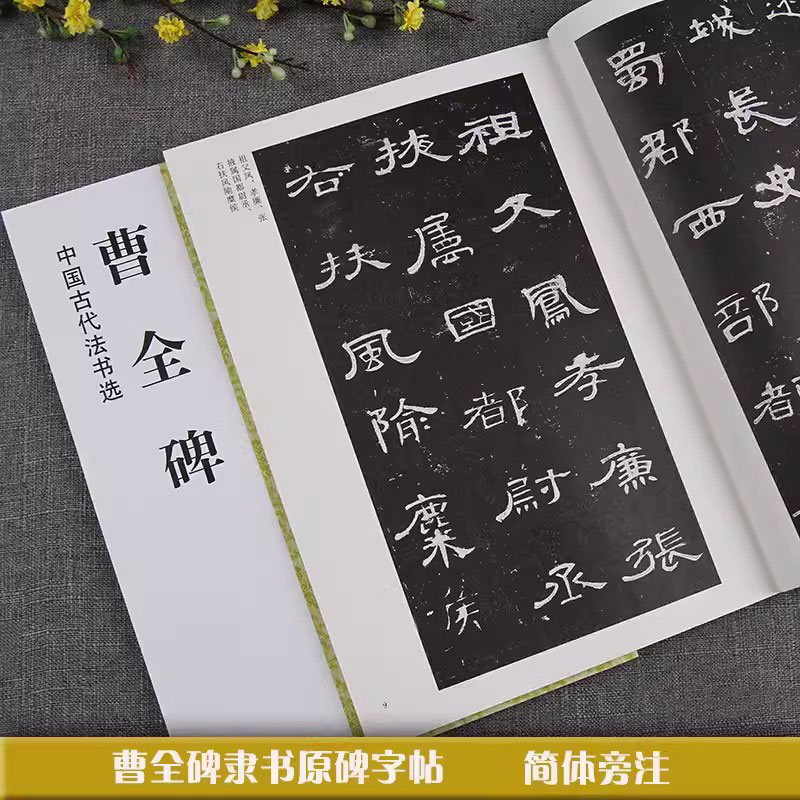 曹全碑
中国古代法书选
祖父凤，孝廉、张
掖属国都尉丞、
右扶风隃糜侯
祖父鳳孝廉張
掖屬國都尉丞
右扶風隃麋侯
9
城長史
蜀郡西部都
曹全碑隶书原碑字帖 简体旁注